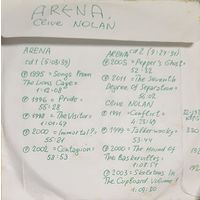 ARENA,
Clive NOLAN
ARENA
cd 1 (5:08:39)
1995 = Songs From
The Lions Cage =
1:12:08
1996 = Pride =
55:28
1998 = The Visitor =
1:01:49
2000 = Immortal? =
55:21
2002 = Contagion =
58:53
ARENA cd 2 (5:24:31)
2005 = Pepper's Ghost =
52:32
2011 = The Seventh
Degree of Separation =
56:02
Clive NOLAN
1991 = Conflict =
1999 = Jabberwocky =
53:44
2000 = The Hound Of
The Baskervilles =
2003 = Skeletons In
The Cupboard Volume I
1:09:50